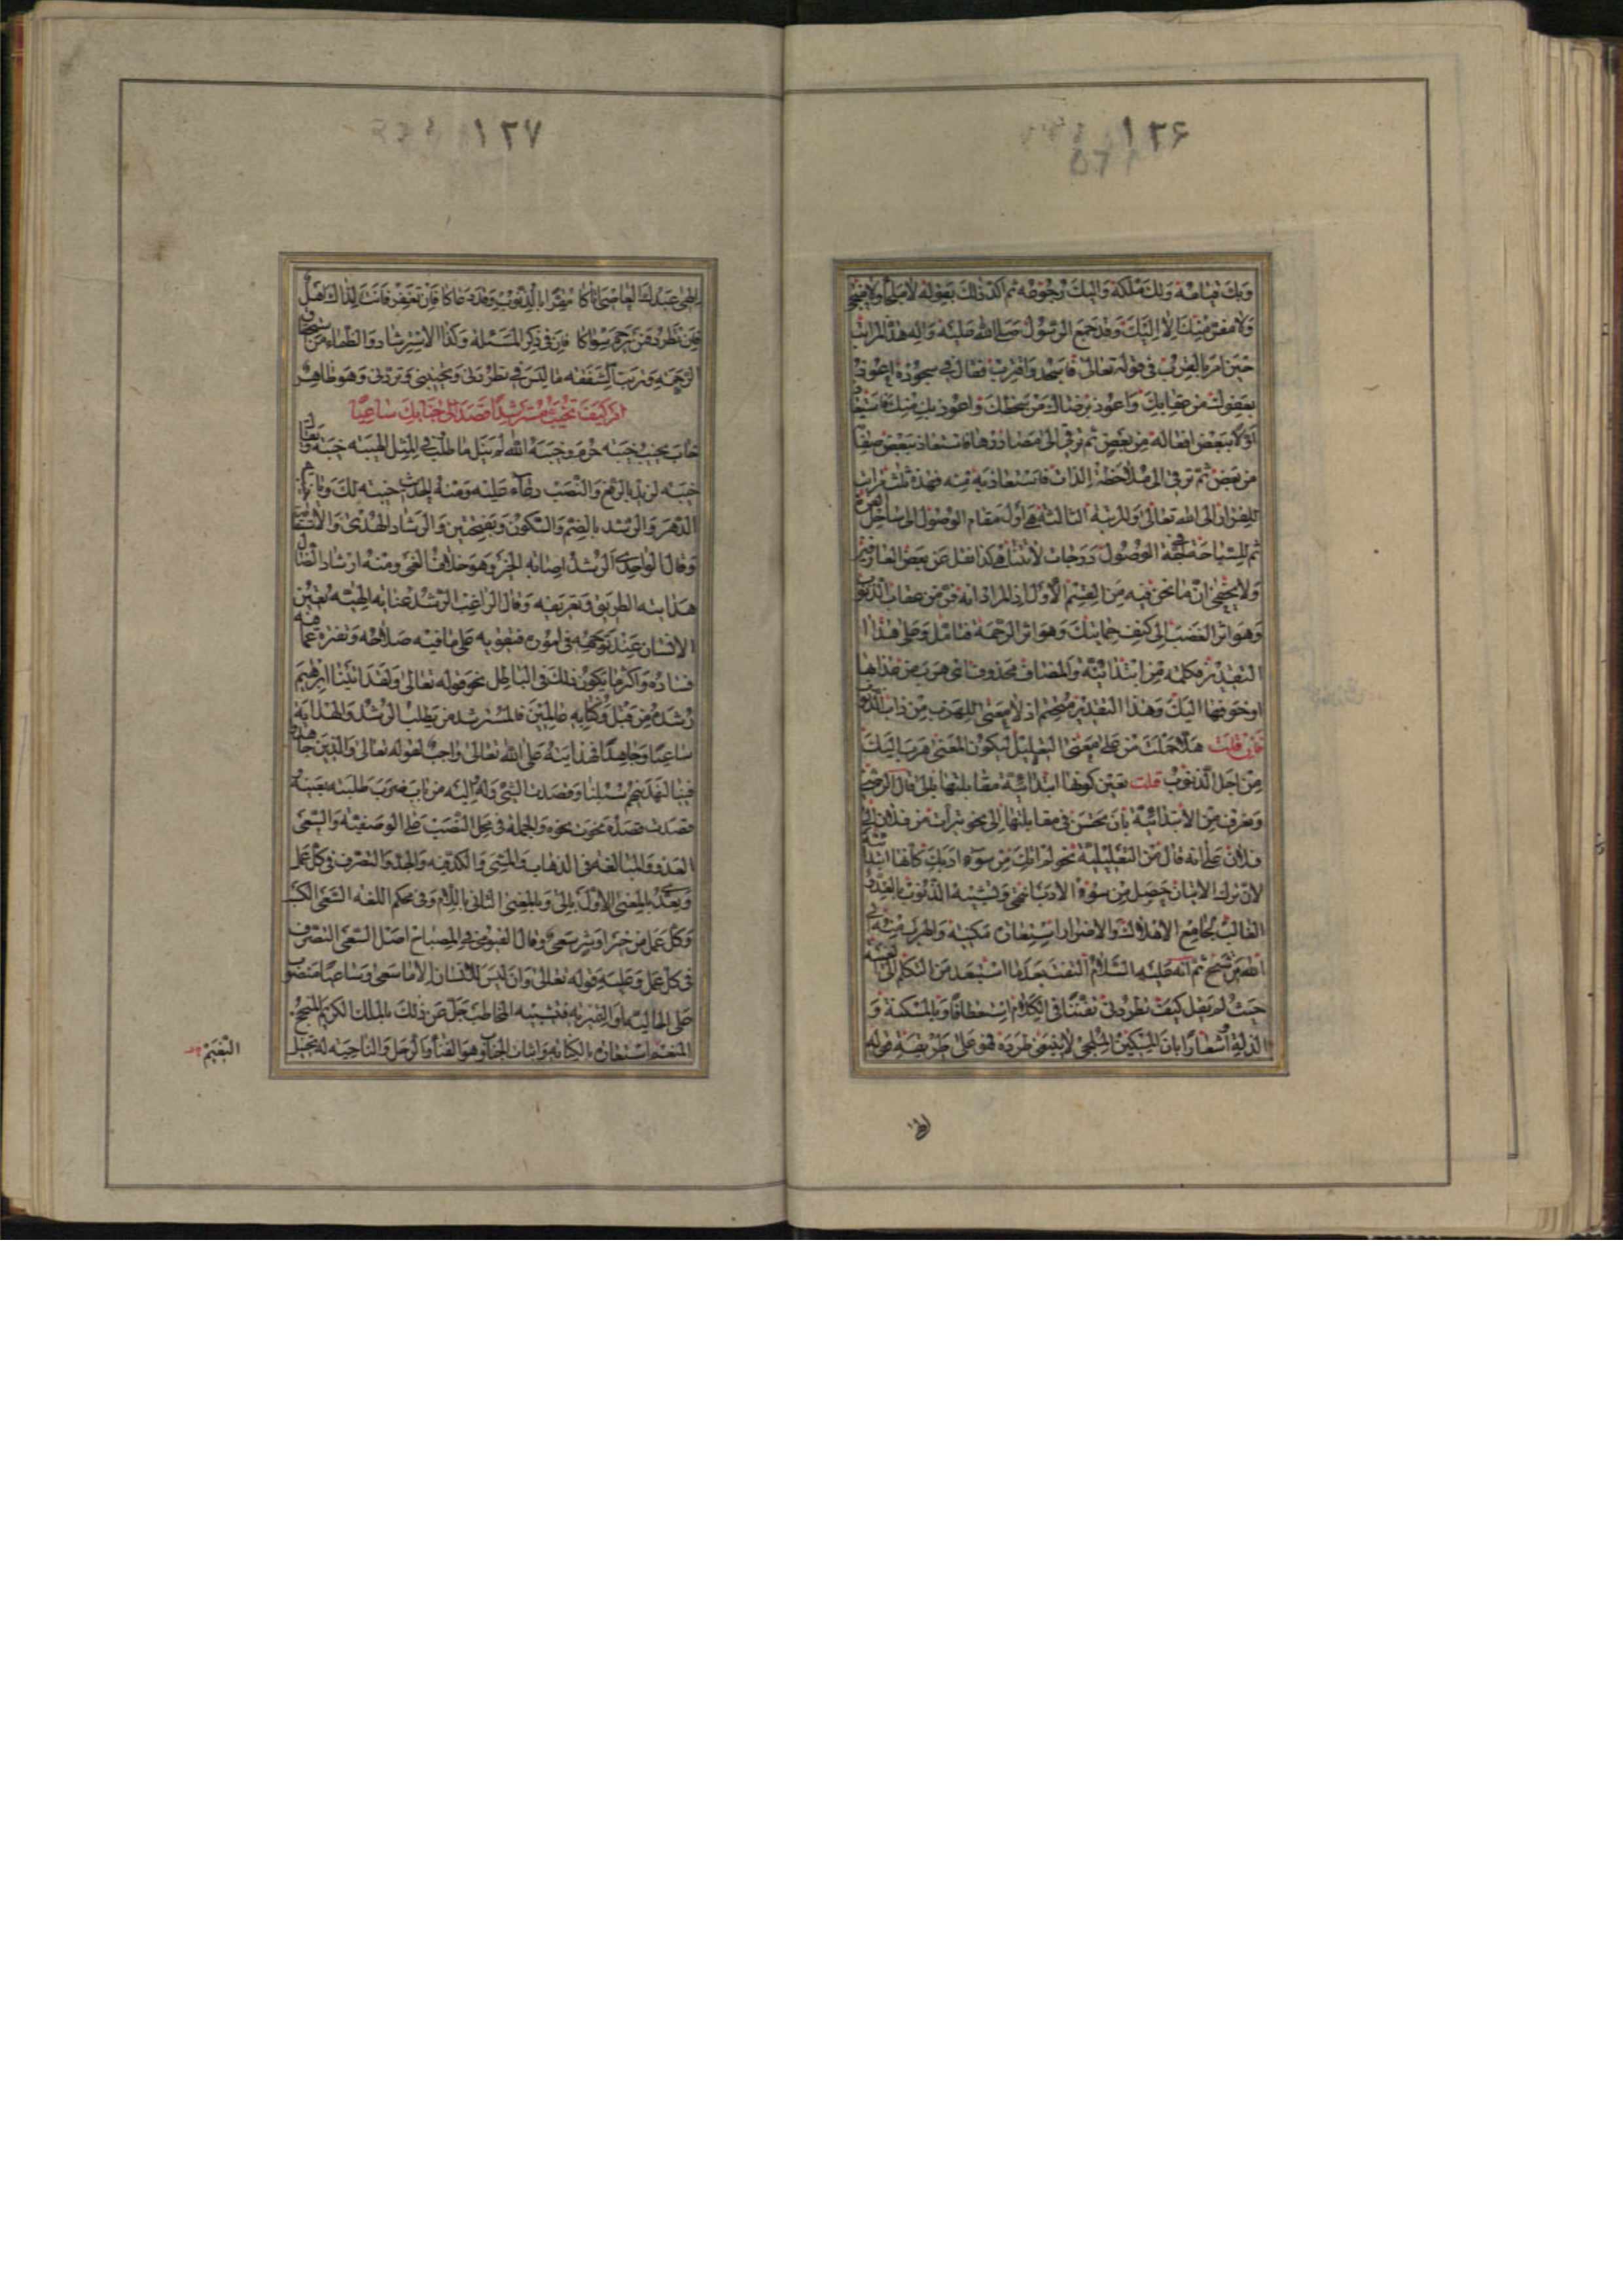 ١٢۶
وبك قيامه ولك ملكه واليك رجوعه ثم اكد ذلك بقوله لا ملجأ ولا منجى
ولا مفر منك الا اليك وقد جمع الرسول صلى الله عليه واله هذه المراتب
حين امر بالقرب في قوله تعالى فاسجد واقترب فقال في سجوده اعوذ
بعفوك من عقابك واعوذ برضاك من سخطك واعوذ بك منك فاستعاذ
اولا ببعض افعاله من بعض ثم ترقى الى مصادرها فاستعاذ ببعض صفاته
من بعض ثم ترقى الى ملاحظة الذات فاستعاذ به منه فهذه ثلث مراتب
للفرار الى الله تعالى والمرتبة الثالثة هي اول مقام الوصول الى ساحل العزة
ثم للسباحة في لجة الوصول درجات لا تتناهى كذا نقل عن بعض العارفين
ولا يخفى ان ما نحن فيه من القسم الاول اذ المراد انه فر من عقاب الذنوب
وهو اثر الغضب الى كنف حمايتك وهو اثر الرحمة فتامل وعلى هذا
التقدير فكلمة من ابتدائية والمضاف محذوف اي هرب من عذابها
او خوفها اليك وهذا التقدير اذ لا معنى للهرب من ذات الذنوب
فان قلت هلا حملت من على معنى التعليل ليكون المعنى هرب اليك
من اجل الذنوب قلت تعين كونها ابتدائية مقابلتها بالى قال الرضي
وتعرف من الابتدائية بان يحسن في مقابلتها الى نحو من فلان الى
فلان على انه قال من التعليلية نحو لم اتك من سوء ادبك كانها ابتدائية
لان ترك الاتيان حصل من سوء الادب انتهى وتشبيه الذنوب بالعدو
الغالب بجامع الاهلاك والاضرار استعارة مكنية والهرب منه الى
الله ترشيح ثم انه عليه السلام التفت بعد ما استبعد من التكلم الى الغيبة
حيث لم يقل كيف تطردني تفننا في الكلام استعطافا وبالمسكنة و
الذلة اشعارا بان المسكين الملتجي لا ينبغي طرده فهو على طريقة قوله
الهي
١٢٧
الهي عبدك العاصي اتاكا مقرا بالذنوب وقد دعاكا فان تغفر فانت لذاك اهل
فان تطرد فمن يرحم سواكا فان في ذكر المسكنة وكذا الاسترشاد والظماء من استحقاق
الرحمة وترتب الشفقة ما ليس في تطردني وتخيبني وتردني وهو ظاهر
ام كيف تخيب مسترشدا قصد الى جنابك ساعيا
خاب يخيب خيبة حرم وخيبه الله لم ينل ما طلب في المثل الهيبة خيبة ويقال
خيبة لزيد بالرفع والنصب دعاء عليه ومنه الحديث خيبة لك ويا خيبة
الدهر والرشد بالضم والسكون وبفتحتين والرشاد الهدى والاستقامة
وقال الواحدي الرشد اصابة الخير وهو خلاف الغي ومنه ارشاد الضال
هدايته الطريق وتعريفه وقال الراغب الرشد عناية الهية تعين
الانسان عند توجهه في اموره فتقويه على ما فيه صلاحه وتفتره عما فيه
فساده واكثر ما يكون ذلك في الباطل نحو قوله تعالى ولقد اتينا ابرهيم
رشده من قبل وكنا به عالمين فالمسترشد من يطلب الرشد والهداية
ساعيا وجاهدا فهدايته على الله تعالى واجب لقوله تعالى والذين جاهدوا
فينا لنهدينهم سبلنا وقصدت الشيء وله واليه من باب ضرب طلبته بعينه
وقصدت قصده نحوت نحوه والجملة في محل النصب على الوصفية والسعي
العدو والمبالغة في الذهاب والمشي والكد فيه والجد والتصرف في كل عمل
ويعدى بالمعنى الاول بالى وبالمعنى الثاني باللام وفي محكم اللغة السعي الكسب
وكل عمل من خير او شر سعي وقال الفيومي في المصباح اصل السعي التصرف
في كل عمل وعليه قوله تعالى وان ليس للانسان الا ما سعى وساعيا منصوب
على الحالية او التمييز فتشبيه المخاطب جل عن ذلك بالملك الكريم
المنعم استعارة بالكناية واثبات الجناب وهو الفناء والرحل والناحية له تخييل